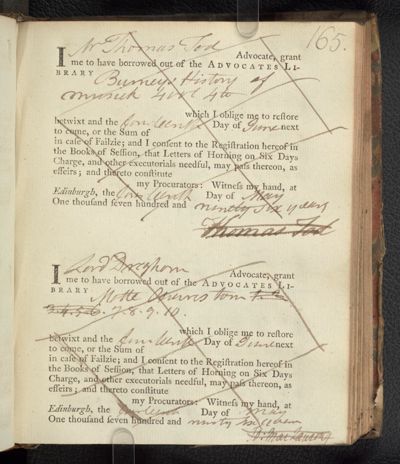 165.
I Mr Thomas Tod Advocate, grant
me to have borrowed out of the ADVOCATES LI-
BRARY Burneys History of
musick 4 vol 4to
which I oblige me to restore
betwixt and the Day of June next
to come, or the Sum of
in case of Failzie; and I consent to the Registration hereof in
the Books of Session, that Letters of Horning on Six Days
Charge, and other executorials needful, may pass thereon, as
effeirs; and thereto constitute
my Procurators: Witness my hand, at
Edinburgh, the Day of May
One thousand seven hundred and ninety six years
Thomas Tod
I Lord Dreghorn Advocate, grant
me to have borrowed out of the ADVOCATES LI-
BRARY Motte tom
7. 8. 9. 10.
which I oblige me to restore
betwixt and the Day of June next
to come, or the Sum of
in case of Failzie; and I consent to the Registration hereof in
the Books of Session, that Letters of Horning on Six Days
Charge, and other executorials needful, may pass thereon, as
effeirs; and thereto constitute
my Procurators: Witness my hand, at
Edinburgh, the Day of May
One thousand seven hundred and ninety six